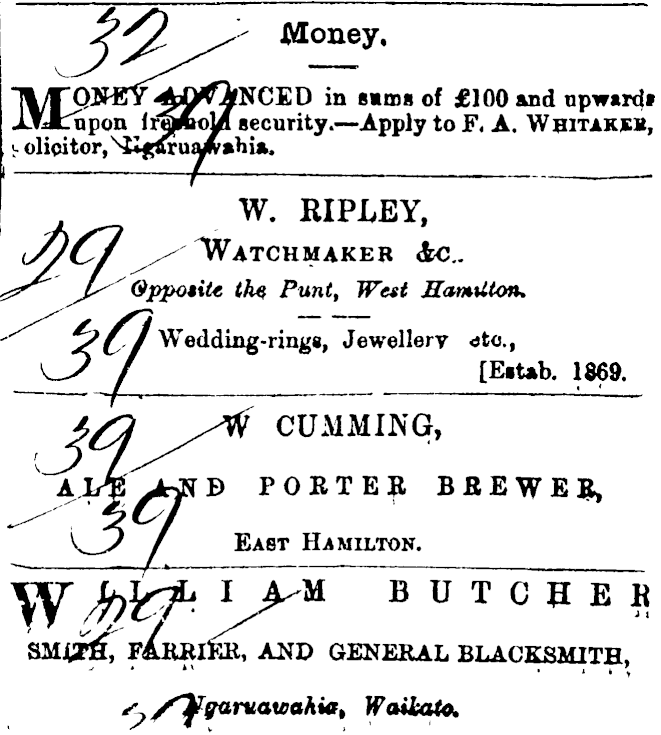 32
Money.
MONEY ADVANCED in sums of £100 and upwards
39
upon freehold security.—Apply to F. A. WHITAKER,
olicitor, Ngaruawahia.
W. RIPLEY,
29
WATCHMAKER &C..
Opposite the Punt, West Hamilton.
39
Wedding-rings, Jewellery etc.,
[Estab. 1869.
W CUMMING,
39
ALE AND PORTER BREWER,
39
EAST HAMILTON.
WILLIAM BUTCHER
29
SMITH, FARRIER, AND GENERAL BLACKSMITH,
Ngaruawahia, Waikato.